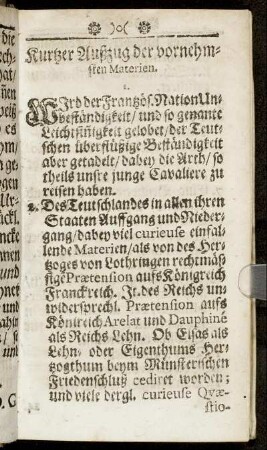 )o(
Kurtzer Außzug der vornehm-
sten Materien.
1.
WIrd der Frantzös. Nation Un-
beständigkeit/ und so genante
Leichtsinigkeit gelobet/ der Teut-
schen überflüßige Beständigkeit
aber getadelt/ dabey die Arth/ so
theils unsre junge Cavaliere zu
reisen haben.
2. Des Teutschlandes in allen ihren
Staaten Auffgang und Nieder-
gang/ dabey viel curieuse einfal-
lende Materien/ als von des Her-
tzoges von Lothringen rechtmäs-
sige Prætension auffs Königreich
Franckreich. Jt. des Reichs un-
widersprechl. Prætension auffs
Köntreich Arelat und Dauphiné
als Reichs Lehn. Ob Elsas als
Lehn- oder Eigenthums Her-
tzogthum beym Münsterischen
Friedenschluß cediret worden;
und viele dergl. curieuse Qvæ-
stio-